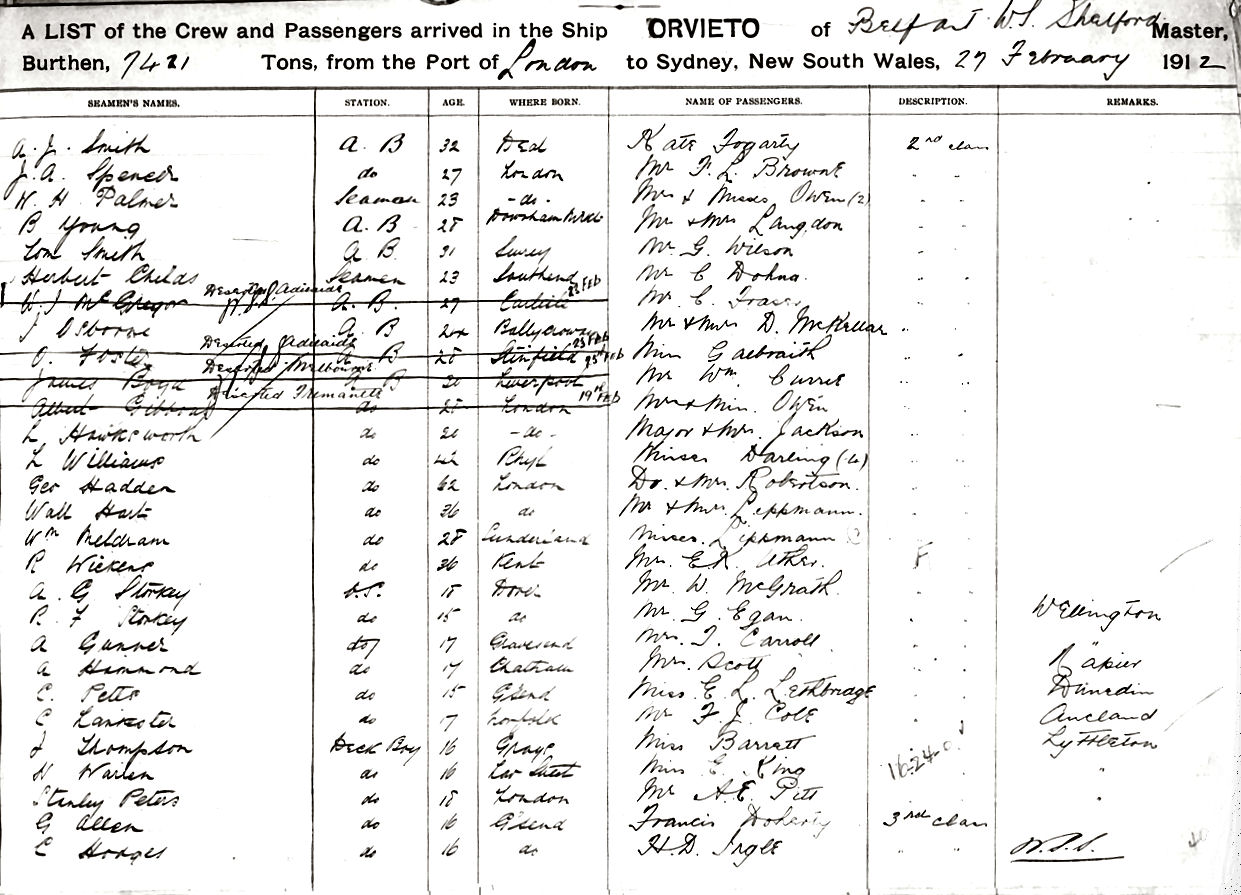 A LIST of the Crew and Passengers arrived in the Ship ORVIETO of Belfast W.S. Shelford Master,
Burthen, 7421 Tons, from the Port of London to Sydney, New South Wales, 27 February 1912
SEAMEN'S NAMES. STATION. AGE. WHERE BORN. NAME OF PASSENGERS. DESCRIPTION. REMARKS.
A. J. Smith A. B 32 Kate Fogarty 2nd class
J. A. Spencer do 27 London Mr F. L. Browne " "
W. H. Palmer Seaman 23 - do - Mrs & Misses Owen (2) " "
B Young A. B 28 Mr & Mrs Langdon " "
Tom Smith A B 31 Surrey Mr G. Wilson " "
Herbert Childs Seaman 23 Southend Mr C Dohna " "
Deserted Adelaide 23 FEB
W. J McGregor A. B. 27 Carlisle Mr C. Fraser " "
J Osborne A. B Mr & Mrs D. McKellar "
Deserted Adelaide 23 FEB
O. Foster A B 28 Miss Galbraith " "
Deserted Melbourne
James Boyd A B Liverpool Mr Wm. Currie " "
Deserted Fremantle 19th FEB
Albert Gibbons do 28 London Mr & Mrs. Owen " "
L Hawksworth do - do - Major & Mrs. Jackson " "
L Williams do 42 Rhyl Misses Darling " "
Geo Hadden do 62 London Dr. & Mrs. Robertson " "
Walt Hart do 36 do Mr & Mrs Lippmann. " "
Wm Meldram do 28 Sunderland Misses. Lippmann " "
R Wickens do 36 Kent Mr. E.R. F
A. G Storkey O.S. 18 Dover Mr. W. McGrath " "
R. F Storkey do 15 do Mr. G. Egan. " " Wellington
A Gunner do 17 Gravesend Mrs. T. Carroll " " "
A Hammond do 17 Chatham Mrs. Scott " " Napier
C. Pette do 15 G'send Miss E L. Lethbridge " Dunedin
C Lankester do 17 Norfolk Mr F. J. Cole " Aucland
J Thompson Deck Boy 16 Grays Miss Barrett " Lyttleton
H Warren do 16 Miss E. King 16-24-0 "
Stanley Peters do 18 London Mr A.E. Pitt "
G Allen do 16 G'send Francis Doherty 3rd class
C Hodges do 16 do H.D. Ingle " " W.S.S.